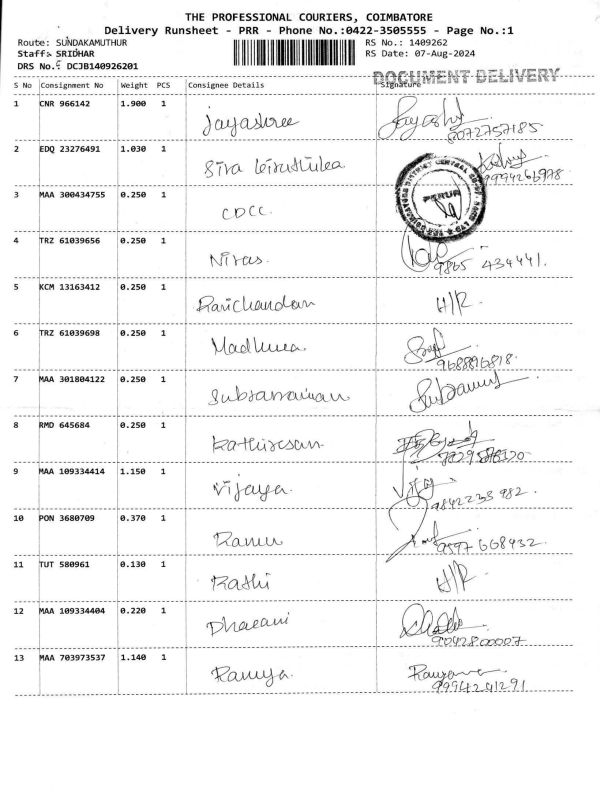 THE PROFESSIONAL COURIERS, COIMBATORE
Delivery Runsheet - PRR - Phone No.:0422-3505555 - Page No.:1
Route: SUNDAKAMUTHUR RS No.: 1409262
Staff: SRIDHAR RS Date: 07-Aug-2024
DRS No.: DCJB140926201
DOCUMENT DELIVERY
S No Consignment No Weight PCS Consignee Details Signature
1 CNR 966142 1.900 1 Jayashree Jayashry
8072757185
2 EDQ 23276491 1.030 1 Siva
9994266978
3 MAA 300434755 0.250 1 CDCC
PERUR
4 TRZ 61039656 0.250 1 Nivas.
9865 434441.
5 KCM 13163412 0.250 1 Ravichandan H/R.
6 TRZ 61039698 0.250 1 Madhura
9688896818.
7 MAA 301804122 0.250 1 Subramanian
8 RMD 645684 0.250 1 Kathiresan
9 MAA 109334414 1.150 1 Vijaya.
9842233982.
10 PON 3680709 0.370 1 Ramu
9597668932.
11 TUT 580961 0.130 1 Rathi H/R
12 MAA 109334404 0.220 1 Dharani
9042800007
13 MAA 703973537 1.140 1 Ramya.
9994241291